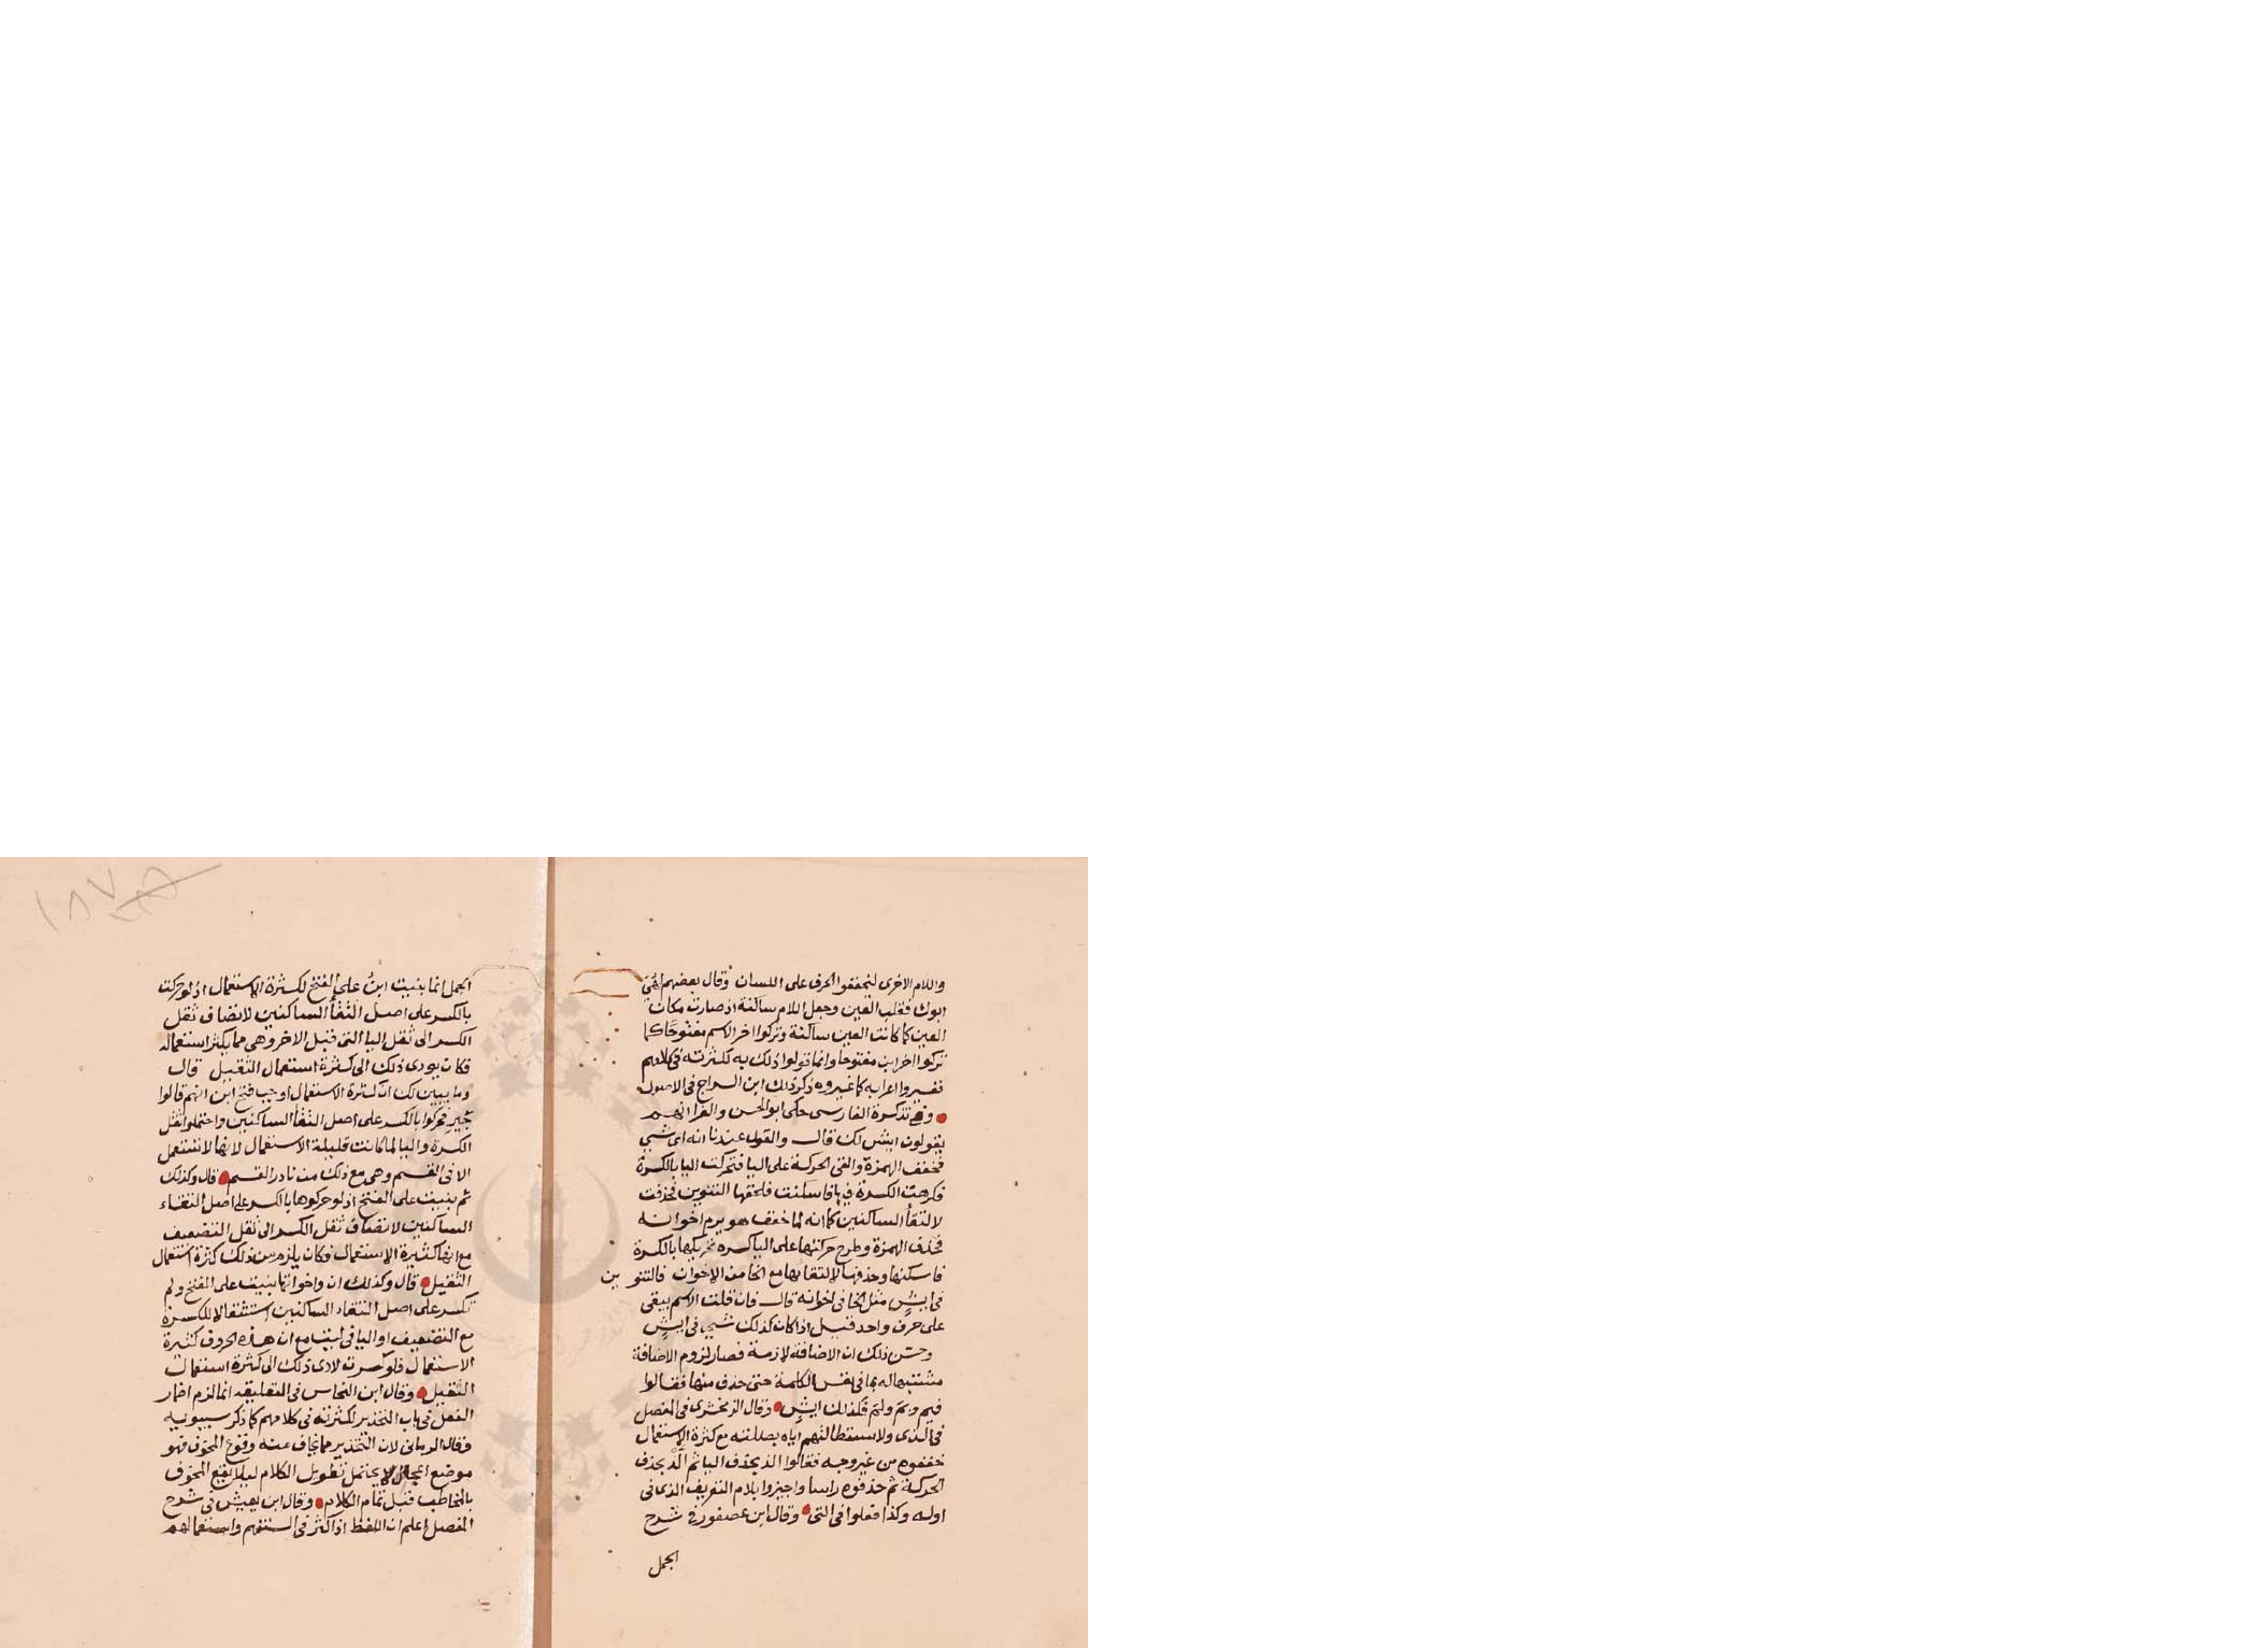 واللام الاخرى ليخففوا الحرف على اللسان وقال بعضهم لهْيَ
ابوك فقلب العين وجعل اللام ساكنة اذ صارت مكان
العين كما كانت العين ساكنة وتركوا اخر الاسم مفتوحا كما
تركوا اخر اين مفتوحا وانما فعلوا ذلك به لكثرته في كلامهم
فغيروا اعرابه كما غيروه ذكر ذلك ابن السراج في الاصول
وفي تذكرة الفارسي حكى ابو الحسن والفرا انهم
يقولون ايش لك قال والقول عندنا انه اي شي
فخفف الهمزة والقى الحركة على اليا فتحركت اليا بالكسرة
فكرهت الكسرة في يا فاسكنت فلحقها التنوين فحذفت
لالتقأ الساكنين كما انه لما خفف هو يرم اخوانه
فحذف الهمزة وطرح حركتها على اليا كره تحريكها بالكسرة
فاسكنها وحذفها لالتقايها مع الخا من الاخوان فالتنوين
في ايشٍ مثل الخا في اخوانه قال فان قلت الاسم يبقى
على حرف واحد قيل اذا كان كذلك شي في ايشٍ
وحسّن ذلك ان الاضافة لازمة فصار لزوم الاضافة
مشبها له بما في نفس الكلمة حتى حذف منها فقالوا
فيم وبم ولم فكذلك ايشٍ وقال الزمخشرى في المفصل
في الذى ولاستطالتهم اياه بصلته مع كثرة الاستعمال
خففوه من غير وجه فقالوا الذِ بحذف اليا ثم الذْ بحذف
الحركة ثم حذفوه راسا واجتزوا بلام التعريف الذى في
اوله وكذا فعلوا في التي وقال ابن عصفور في شرح
الجمل
الجمل انما بنيت اينَ على الفتح لكثرة الاستعمال اذ لو حركت
بالكسر على اصل التقأ الساكنين لانضاف ثقل
الكسر الى ثقل اليا التي قبل الاخر وهي مما يكثر استعماله
فكان يودى ذلك الى كثرة استعمال الثقيل قال
ومما يبين لك ان كثرة الاستعمال اوجب فتح اين انهم قالوا
جَيرِ فحركوا بالكسر على اصل التقأ الساكنين واحتملوا ثقل
الكسرة واليا لما كانت قليلة الاستعمال لانها لا تستعمل
الا في القسم وهي مع ذلك من نادر القسم قال وكذلك
ثم بنيت على الفتح اذ لو حركوها بالكسر على اصل التقاء
الساكنين لانضاف ثقل الكسر الى ثقل التضعيف
مع انها كثيرة الاستعمال فكان يلزم من ذلك كثرة استعمال
الثقيل قال وكذلك ان واخواتها بنيت على الفتح ولم
تكسر على اصل التقاء الساكنين استثقالا للكسرة
مع التضعيف او اليا في ليت مع ان هذه الحروف كثيرة
الاستعمال فلو كسرت لادى ذلك الى كثرة استعمال
الثقيل وقال ابن النحاس في التعليقه انما لزم اضمار
الفعل في باب التحذير لكثرته في كلامهم كما ذكر سيبويه
وقال الرماني لان التحذير مما يخاف منه وقوع المخوف فهو
موضع اعجال لا يحتمل تطويل الكلام ليلا يقع المخوف
بالمخاطب قبل تمام الكلام وقال ابن يعيش في شرح
المفصل اعلم ان اللفظ اذا كثر في السنتهم واستعمالهم